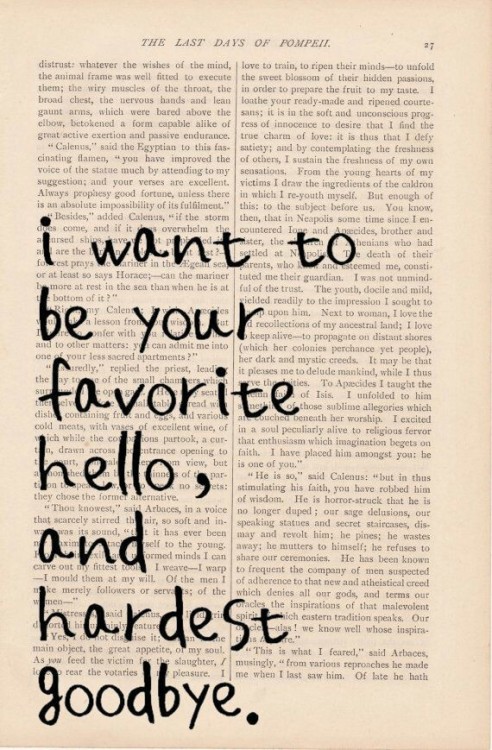 THE LAST DAYS OF POMPEII. 27
i want to
be your
favorite
hello,
and
hardest
goodbye.
distrust: whatever the wishes of the mind,
the animal frame was well fitted to execute
them; the wiry muscles of the throat, the
broad chest, the nervous hands and lean
gaunt arms, which were bared above the
elbow, betokened a form capable alike of
great active exertion and passive endurance.
“Calenus,” said the Egyptian to this fas-
cinating flamen, “you have improved the
voice of the statue much by attending to my
suggestion; and your verses are excellent.
Always prophesy good fortune, unless there
is an absolute impossibility of its fulfilment.”
“Besides,” added Calenus, “if the storm
does come, and if it does overwhelm the
forest prays the mariner in the Egean sea
or at least so says Horace;—can the mariner
be more at rest in the sea than when he is at
the bottom of it?”
and to other matters: you can admit me into
one of your less sacred apartments?”
replied the priest,
dishes containing fruit and eggs, and various
cold meats, with vases of excellent wine, of
which while the companions partook, a cur-
tain, drawn across the entrance opening to
the court,
they chose the former alternative.
“Thou knowest,” said Arbaces, in a voice
that scarcely stirred the air, so soft and in-
ward was its sound, “that it has ever been
my maxim to attach myself to the young.
carve out my fittest tools. I weave—I warp
—I mould them at my will. Of the men I
make merely followers or servants; of the
women—”
main object, the great appetite, of my soul.
As you feed the victim for the slaughter, I
love to rear the votaries of my pleasure. I
love to train, to ripen their minds—to unfold
the sweet blossom of their hidden passions,
in order to prepare the fruit to my taste. I
loathe your ready-made and ripened courte-
sans; it is in the soft and unconscious prog-
ress of innocence to desire that I find the
true charm of love: it is thus that I defy
satiety; and by contemplating the freshness
of others, I sustain the freshness of my own
sensations. From the young hearts of my
victims I draw the ingredients of the caldron
in which I re-youth myself. But enough of
this: to the subject before us. You know,
then, that in Neapolis some time since I en-
countered Ione and Apæcides, brother and
sister, the children of Athenians who had
settled at Neapolis. The death of their
parents, who knew and esteemed me, consti-
tuted me their guardian. I was not unmind-
ful of the trust. The youth, docile and mild,
yielded readily to the impression I sought to
stamp upon him. Next to woman, I love the
old recollections of my ancestral land; I love
to keep alive—to propagate on distant shores
(which her colonies perchance yet people),
her dark and mystic creeds. It may be that
it pleases me to delude mankind, while I thus
serve the deities. To Apæcides I taught the
of Isis. I unfolded to him
something of those sublime allegories which
are couched beneath her worship. I excited
in a soul peculiarly alive to religious fervor
that enthusiasm which imagination begets on
faith. I have placed him amongst you: he
is one of you.”
“He is so,” said Calenus: “but in thus
stimulating his faith, you have robbed him
of wisdom. He is horror-struck that he is
no longer duped; our sage delusions, our
speaking statues and secret staircases, dis-
may and revolt him; he pines; he wastes
away; he mutters to himself; he refuses to
share our ceremonies. He has been known
to frequent the company of men suspected
of adherence to that new and atheistical creed
which denies all our gods, and terms our
oracles the inspirations of that malevolent
spirit of which eastern tradition speaks. Our
oracles—alas! we know well whose inspira-
tions they are.”
“This is what I feared,” said Arbaces,
musingly, “from various reproaches he made
me when I last saw him. Of late he hath